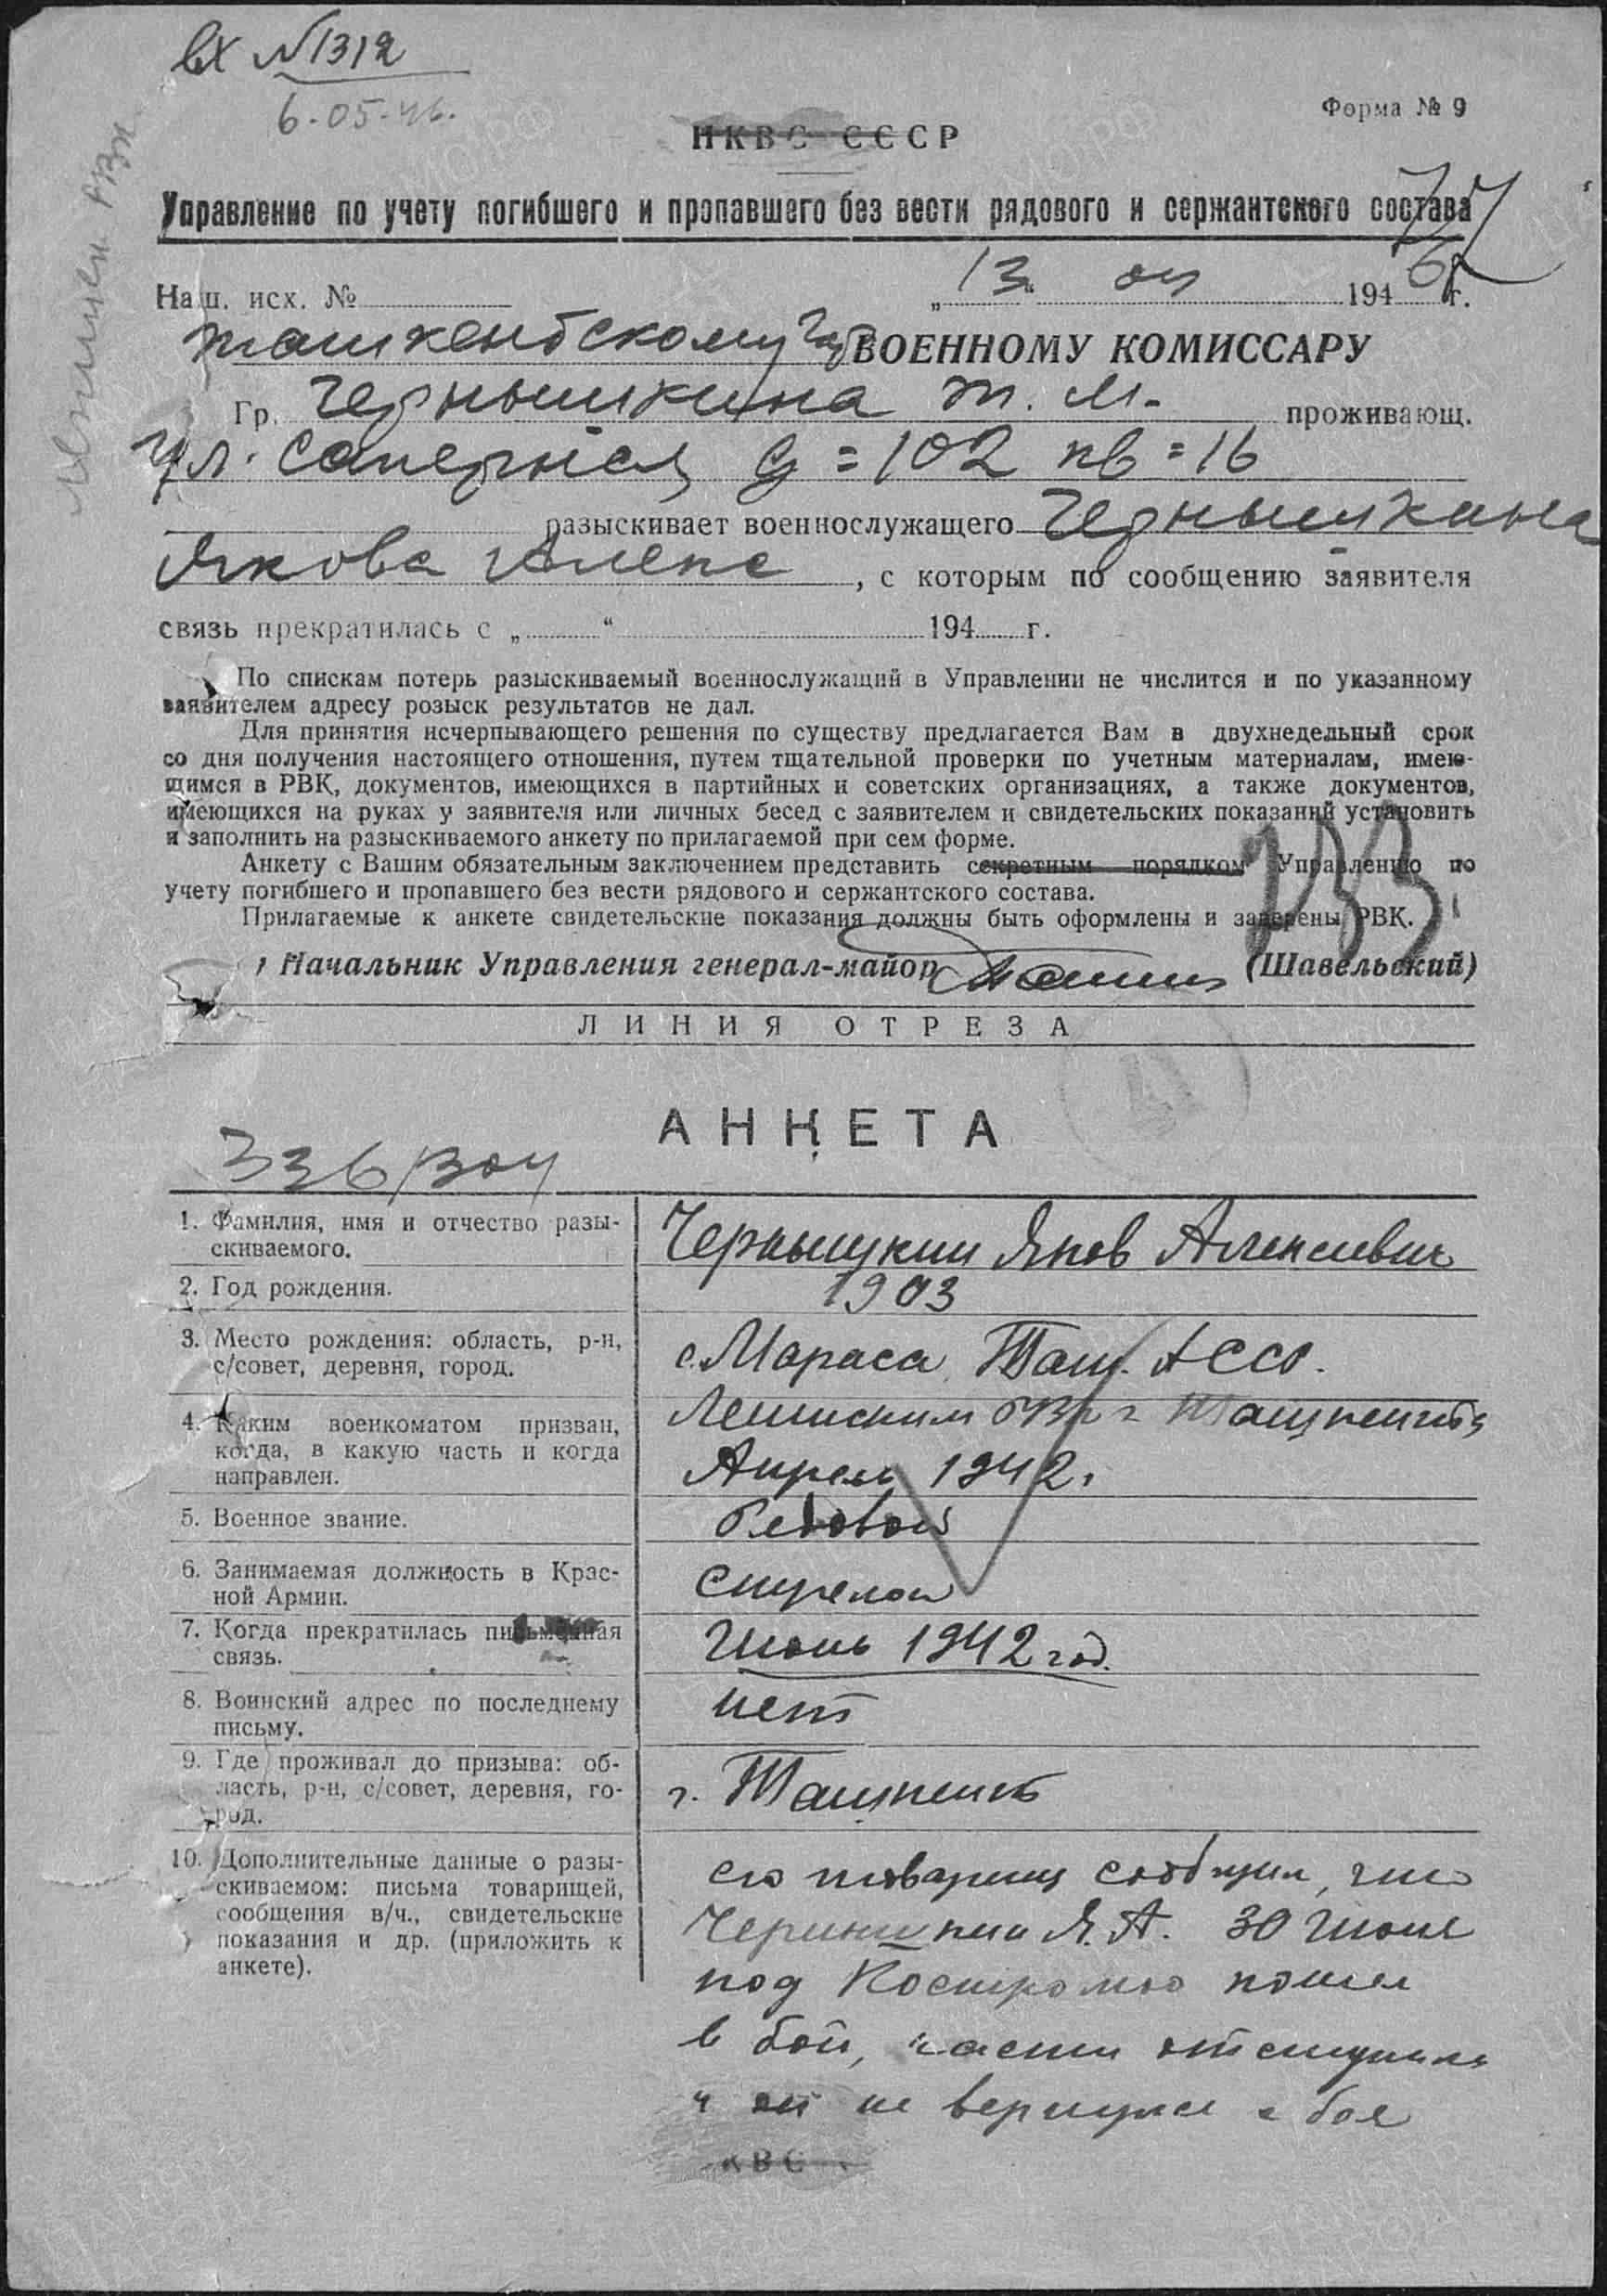 вх N 1312
6-05-46.
Форма № 9
НКВС СССР
Управление по учету погибшего и пропавшего без вести рядового и сержантского состава
Наш. исх. № „13“ 194 6 г.
Ташкентскому ВОЕННОМУ КОМИССАРУ
Гр. Чернышкина Т. М. проживающ.
ул. Саперная д=102 кв=16
разыскивает военнослужащего Чернышкина
Якова Алекс , с которым по сообщению заявителя
связь прекратилась с „ “ 194 г.
По спискам потерь разыскиваемый военнослужащий в Управлении не числится и по указанному
заявителем адресу розыск результатов не дал.
Для принятия исчерпывающего решения по существу предлагается Вам в двухнедельный срок
со дня получения настоящего отношения, путем тщательной проверки по учетным материалам, имею-
щимся в РВК, документов, имеющихся в партийных и советских организациях, а также документов,
имеющихся на руках у заявителя или личных бесед с заявителем и свидетельских показаний установить
и заполнить на разыскиваемого анкету по прилагаемой при сем форме.
Анкету с Вашим обязательным заключением представить секретным порядком Управлению по
учету погибшего и пропавшего без вести рядового и сержантского состава.
Прилагаемые к анкете свидетельские показания должны быть оформлены и заверены РВК.
Начальник Управления генерал-майор (Шавельский)
ЛИНИЯ ОТРЕЗА
АНКЕТА
1. Фамилия, имя и отчество разы-
скиваемого.
Чернышкин Яков Алексеевич
2. Год рождения.
1903
3. Место рождения: область, р-н,
с/совет, деревня, город.
с. Мараса, АССР.
4. Каким военкоматом призван,
когда, в какую часть и когда
направлен.
Ленинским РВК г. Ташкента
Апрель 1942.
5. Военное звание.
Рядовой
6. Занимаемая должность в Крас-
ной Армии.
стрелок
7. Когда прекратилась письменная
связь.
Июнь 1942 год.
8. Воинский адрес по последнему
письму.
нет
9. Где проживал до призыва: об-
ласть, р-н, с/совет, деревня, го-
род.
г. Ташкент
10. Дополнительные данные о разы-
скиваемом: письма товарищей,
сообщения в/ч., свидетельские
показания и др. (приложить к
анкете).
его товарищ сообщил, что
Чернышкин Я. А. 30 Июня
под Костромою пошел
в бой, части отступили
и он не вернулся с боя
КВС